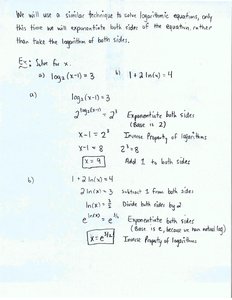 We will use a similar technique to solve logarithmic equations, only
this time we will exponentiate both sides of the equation rather
than take the logarithm of both sides.
Ex: Solve for x.
a) log₂(x-1)=3 b) 1+2ln(x)=4
a) log₂(x-1)=3
2^log₂(x-1) = 2³ Exponentiate both sides
(Base is 2)
x-1 = 2³ Inverse Property of logarithms
x-1 = 8 2³=8
x = 9 Add 1 to both sides
b) 1+2ln(x)=4
2ln(x)=3 subtract 1 from both sides
ln(x)=3/2 Divide both sides by 2
e^ln(x) = e^3/2 Exponentiate both sides
(Base is e, because we have natural log)
x=e^3/2 Inverse Property of logarithms